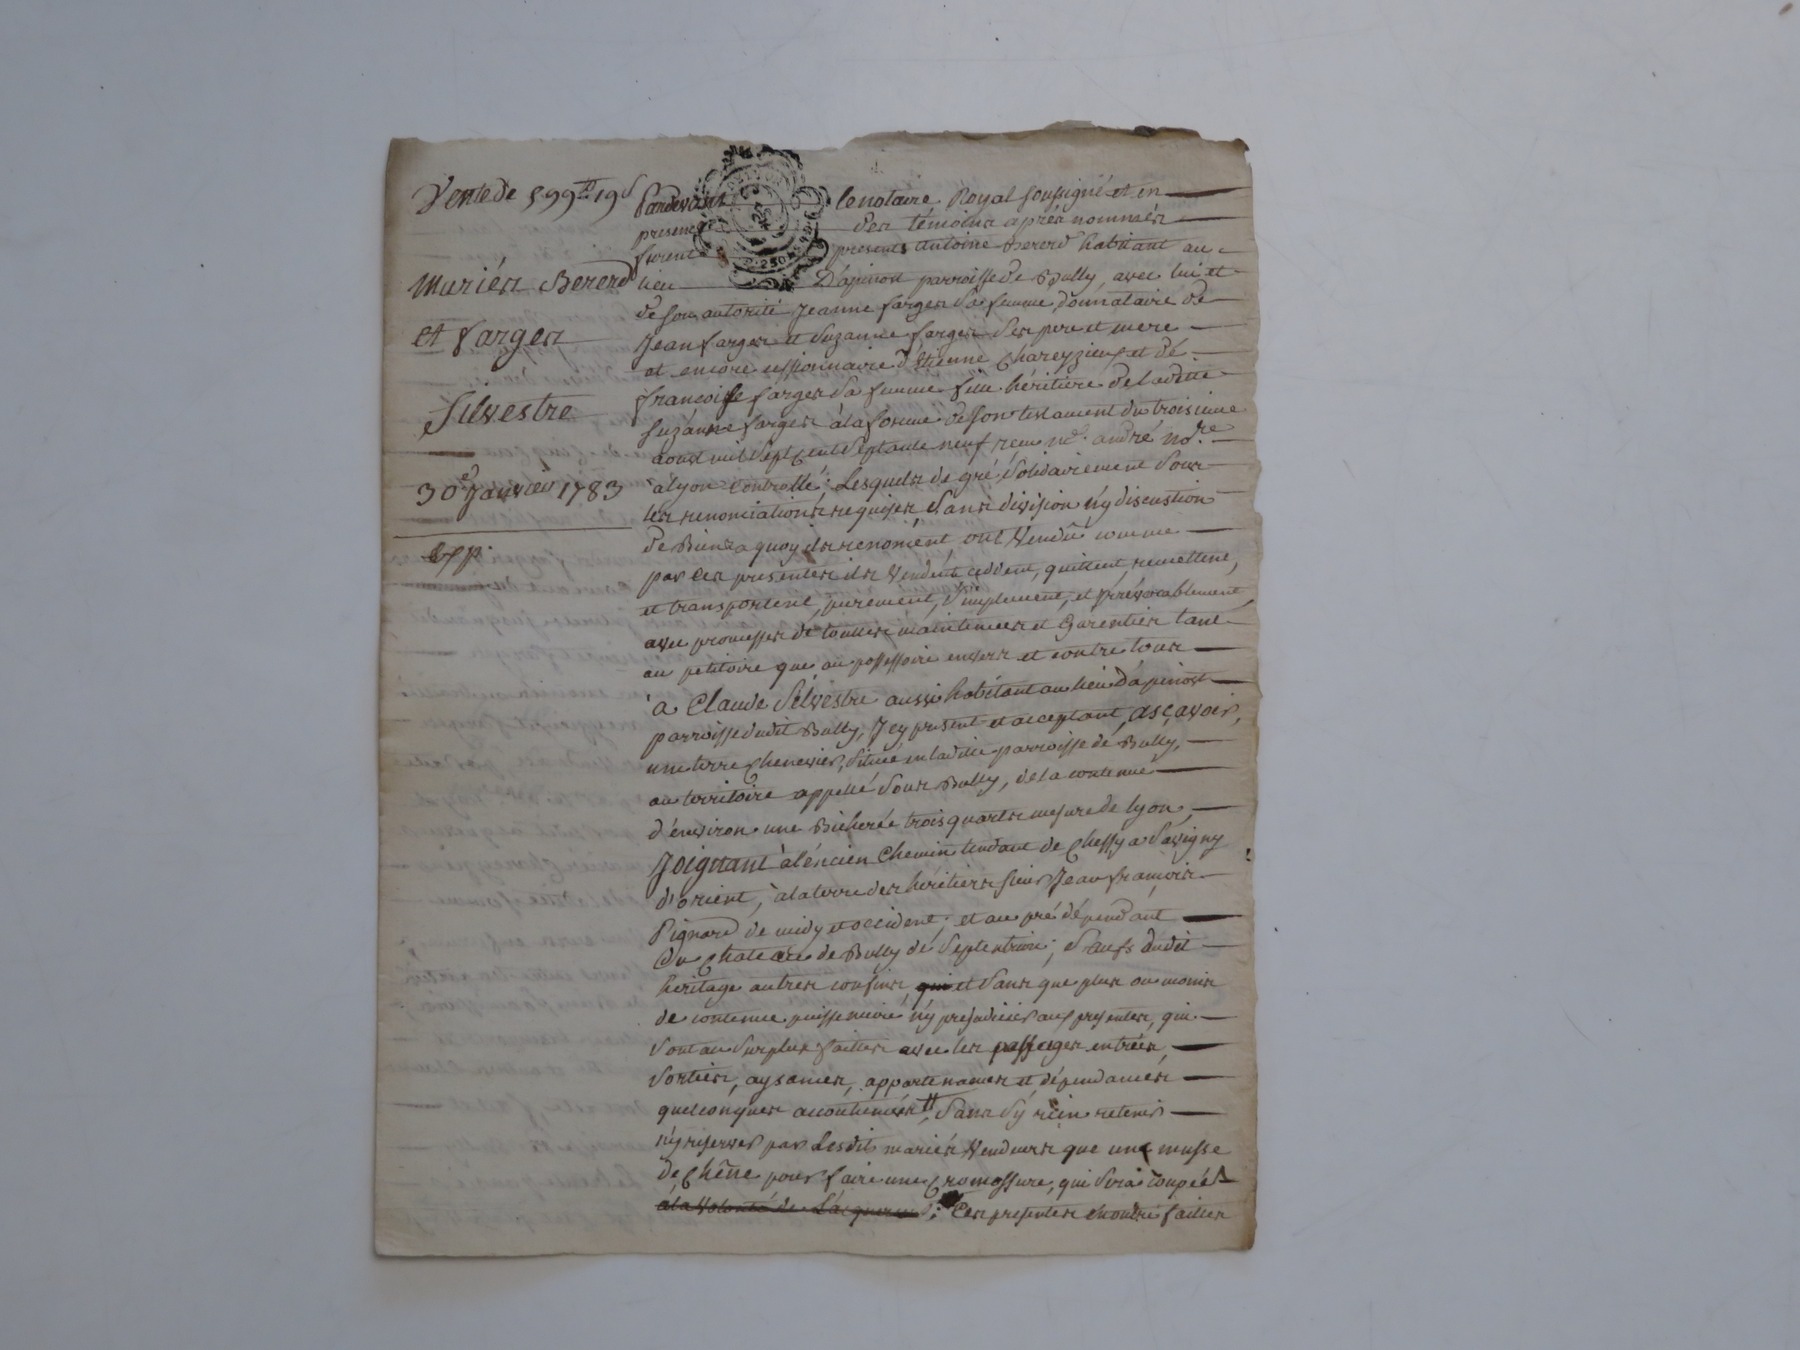 Vente de 599tt 19s
Mariés Bererd
et farges
Silvestre
30e Janvier 1783
Exp.
Pardevant le notaire Royal soussigné et en
presence des témoins après nommés
furent presents Antoine Bererd habitant au
lieu D'apinost parroisse de Bully, avec lui et
de son autorité Jeanne farges sa femme donnataire de
Jean farges et Suzanne farges ses pere et mere
et encore cessionnaire d'Etienne Chareyzieux et de
francoise farges sa femme fille héritière de laditte
Suzanne farges à la forme de son testament du troisieme
aoust mil sept cent septante neuf reçu me. andré nore.
à lyon controllé; Lesquels de gré solidairement sous
les renonciations requises, sans division n'y discustion
de Biens a quoy ils renoncent ont vendu comme
par ces presentes ils vendent cedent, quittent, remettent,
et transportent, purement, simplement, et irrévocablement
avec promesses de touttes maintenues et Garenties tant
au petitoire que au possessoire envers et contre tous
à Claude Silvestre aussi habitant au lieu d'apinost
parroisse dudit Bully, Icy present et acceptant, asçavoir,
une terre Chenevier, située en ladite parroisse de Bully,
au territoire appellé sous Bully, de la contenue
d'environ une Bicherée trois quarts mesure de lyon,
Joignant à l'éncien chemin tendant de Chessy a Savigny
d'orient, à la terre des héritiers sieur Jean françois
Pignard de midy et occident; et au pré dépendant
du Chateau de Bully de Septentrion; Saufs dudit
héritage autres confins qui et sans que plus ou moins
de contenue puisse nuire n'y prejudicier aux presentes, qui
sont au surplus faittes avec les passages entrées,
sorties, aysances, appartenances et dépendances
quelconques accoutumés tt, sans s'y rien retenir
n'y reserver par Lesdits mariés vendeurs que une musse
de Chêne pour faire une, qui sera coupée
à la volonté de L'acquereur; Ces presentes en outre faittes